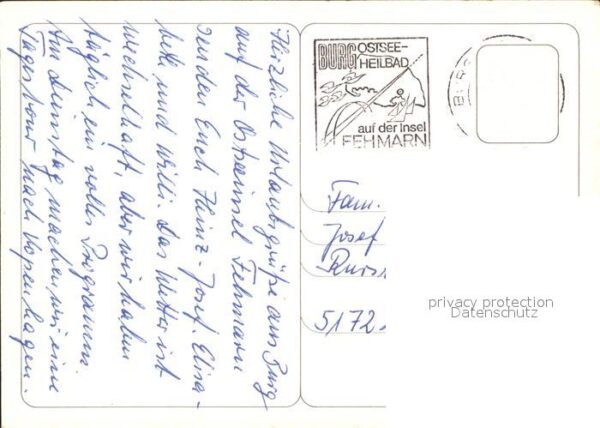 Herzliche Urlaubsgrüße aus Burg
auf der Ostseeinsel Fehmarn
senden Euch Heinz-Josef. Elisa-
beth und Willi. Das Wetter ist
wechselhaft, aber wir haben
täglich ein volles Programm.
Am Dienstag machen wir eine
Tagestour nach Kopenhagen.
BURG OSTSEE-
HEILBAD
auf der Insel
FEHMARN
Fam.
Josef
5172
privacy protection
Datenschutz